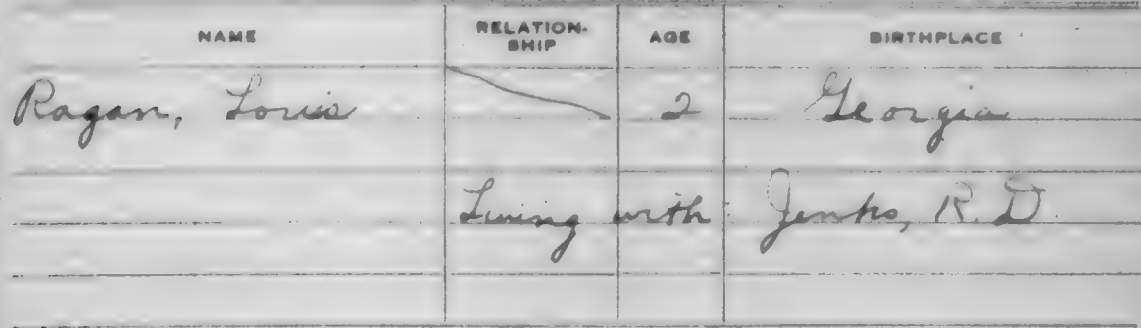 NAME RELATION-SHIP AGE BIRTHPLACE
Ragan, Louis 2 Georgia
Living with Jenks, R. D